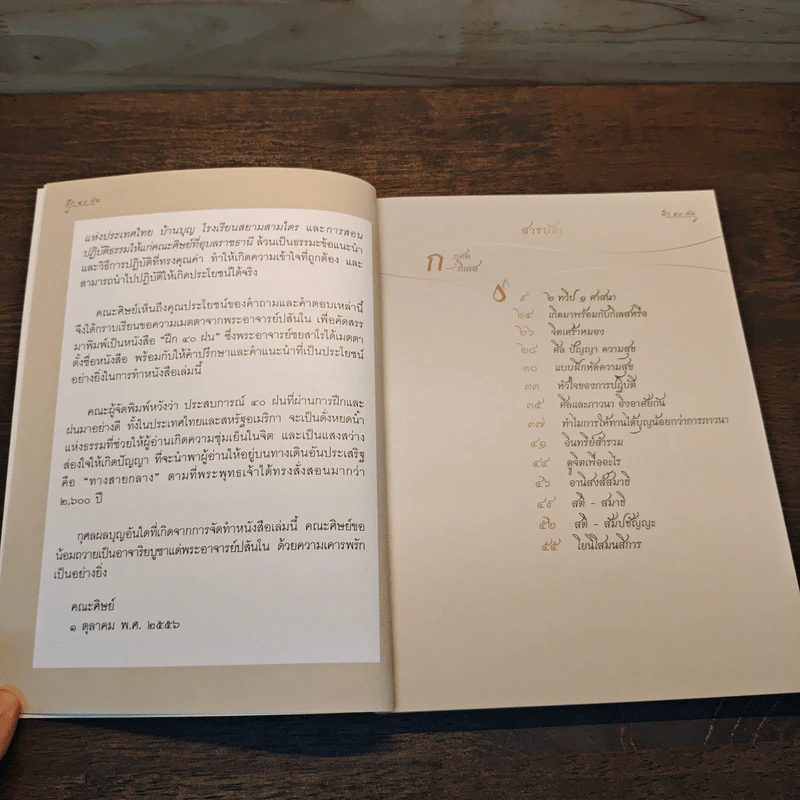 ฝึก ๔๐ ฝน
แห่งประเทศไทย บ้านบุญ โรงเรียนสยามสามไตร และการสอน
ปฏิบัติธรรมให้แก่คณะศิษย์ที่อุบลราชธานี ล้วนเป็นธรรมะข้อแนะนำ
และวิธีการปฏิบัติที่ทรงคุณค่า ทำให้เกิดความเข้าใจที่ถูกต้อง และ
สามารถนำไปปฏิบัติให้เกิดประโยชน์ได้จริง
คณะศิษย์เห็นถึงคุณประโยชน์ของคำถามและคำตอบเหล่านี้
จึงได้กราบเรียนขอความเมตตาจากพระอาจารย์ปสันโน เพื่อคัดสรร
มาพิมพ์เป็นหนังสือ “ฝึก ๔๐ ฝน” ซึ่งพระอาจารย์ชยสาโรได้เมตตา
ตั้งชื่อหนังสือ พร้อมกับให้คำปรึกษาและคำแนะนำที่เป็นประโยชน์
อย่างยิ่งในการทำหนังสือเล่มนี้
คณะผู้จัดพิมพ์หวังว่า ประสบการณ์ ๔๐ ฝนที่ผ่านการฝึกและ
ฝนมาอย่างดี ทั้งในประเทศไทยและสหรัฐอเมริกา จะเป็นดั่งหยดน้ำ
แห่งธรรมที่ช่วยให้ผู้อ่านเกิดความชุ่มเย็นในจิต และเป็นแสงสว่าง
ส่องใจให้เกิดปัญญา ที่จะนำพาผู้อ่านให้อยู่บนทางเดินอันประเสริฐ
คือ “ทางสายกลาง” ตามที่พระพุทธเจ้าได้ทรงสั่งสอนมากว่า
๒,๖๐๐ ปี
กุศลผลบุญอันใดที่เกิดจากการจัดทำหนังสือเล่มนี้ คณะศิษย์ขอ
น้อมถวายเป็นอาจาริยบูชาแด่พระอาจารย์ปสันโน ด้วยความเคารพรัก
เป็นอย่างยิ่ง
คณะศิษย์
๑ ตุลาคม พ.ศ. ๒๕๕๖
ฝึก ๔๐ ฝน
สารบัญ
ก กุศล
กิเลส
๙ ๒ ทวีป ๑ ศาสนา
๒๔ เกิดมาพร้อมกับกิเลสหรือ
๒๖ จิตเศร้าหมอง
๒๘ ศีล ปัญญา ความสุข
๓๐ แบบฝึกหัดความสุข
๓๓ หัวใจของการปฏิบัติ
๓๕ ศีลและภาวนา อิงอาศัยกัน
๓๗ ทำไมการให้ทานได้บุญน้อยกว่าการภาวนา
๔๑ อินทรีย์สำรวม
๔๔ ดูจิตเพื่ออะไร
๔๖ อานิสงส์สมาธิ
๔๙ สติ - สมาธิ
๕๒ สติ - สัมปชัญญะ
๕๕ โยนิโสมนสิการ